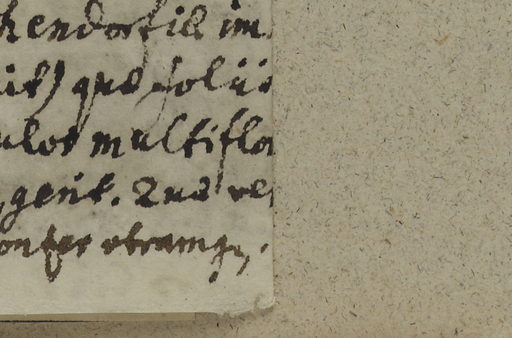 hendorfiæ im
it) quæ foliis
ulos multiflo
gent. Quæ ve
onfer utramq,.